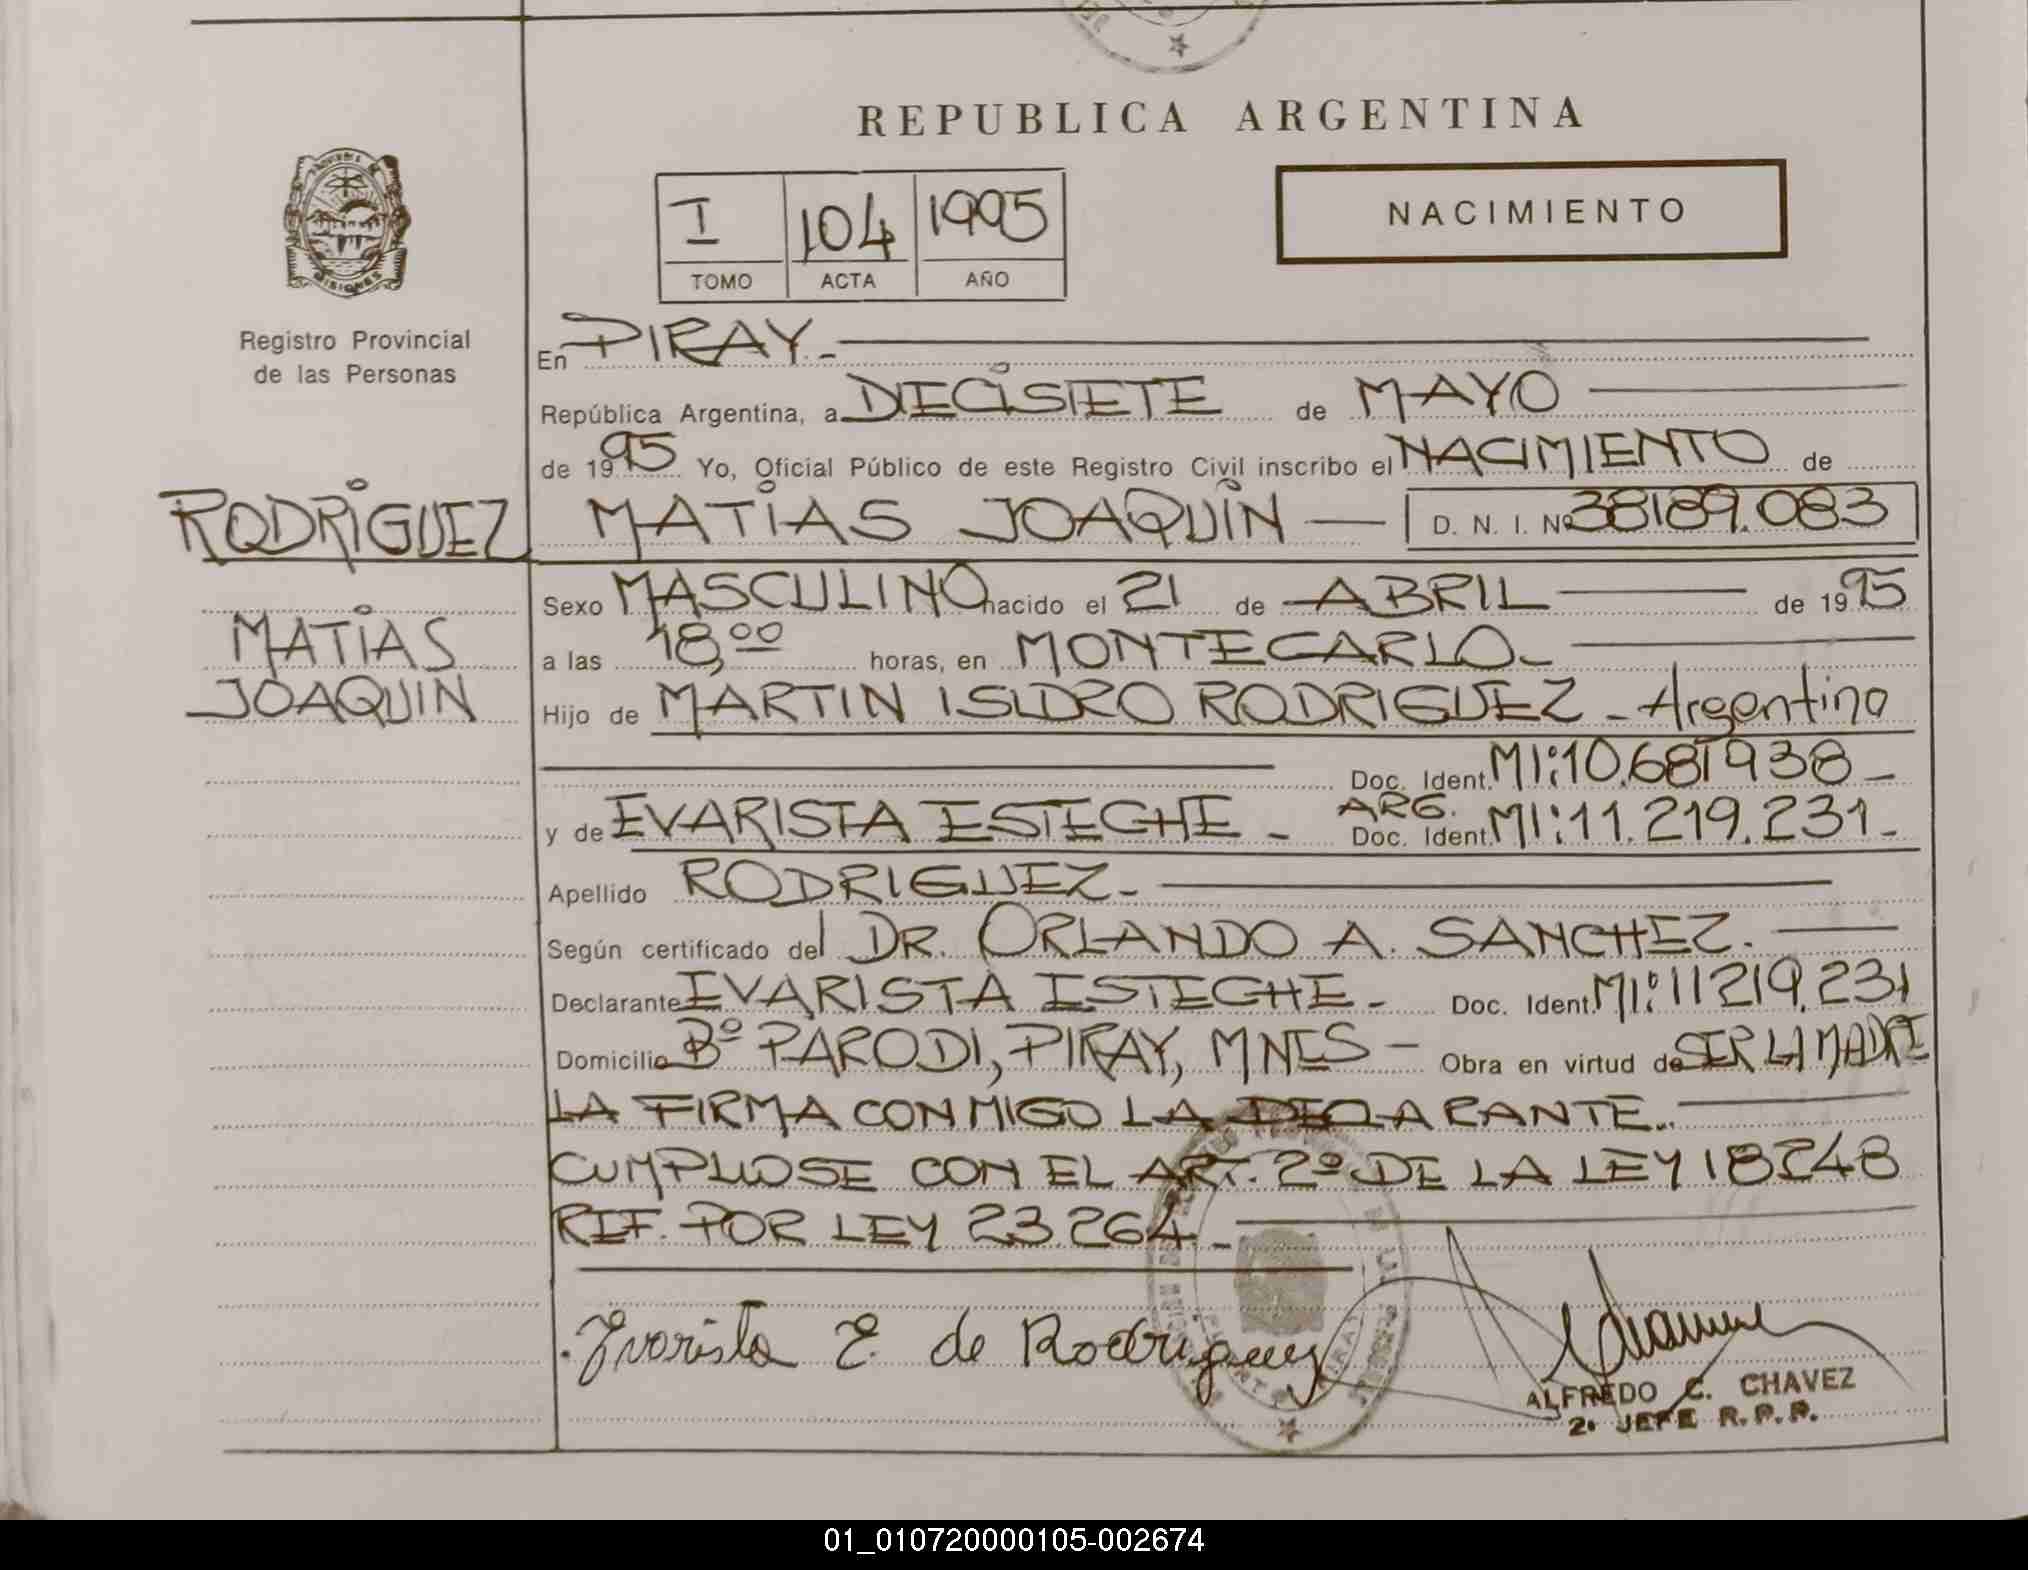 REPUBLICA ARGENTINA
NACIMIENTO
I 104 1995
TOMO ACTA AÑO
MISIONES
Registro Provincial
de las Personas
En PIRAY.-
República Argentina, a DIECISIETE de MAYO
de 1995 Yo, Oficial Público de este Registro Civil inscribo el NACIMIENTO de
RODRIGUEZ
MATIAS JOAQUIN — D. N. I. Nº 38189.083
MATIAS
JOAQUIN
Sexo MASCULINO nacido el 21 de ABRIL de 1995
a las 18,00 horas, en MONTECARLO.-
Hijo de MARTIN ISIDRO RODRIGUEZ - Argentino
Doc. Ident. MI:10.681938-
y de EVARISTA ESTECHE - ARG. Doc. Ident. MI:11.219.231-
Apellido RODRIGUEZ-
Según certificado del DR. ORLANDO A. SANCHEZ.
Declarante EVARISTA ESTECHE- Doc. Ident. MI:11219.231
Domicilio Bº PARODI, PIRAY, MNES - Obra en virtud de SER LA MADRE
LA FIRMA CONMIGO LA DECLARANTE..
CUMPLIOSE CON EL ART. 2º DE LA LEY 18248
REF. POR LEY 23.264.-
Evarista E. de Rodriguez
ALFREDO C. CHAVEZ
2º JEFE R.P.P.
01_010720000105-002674